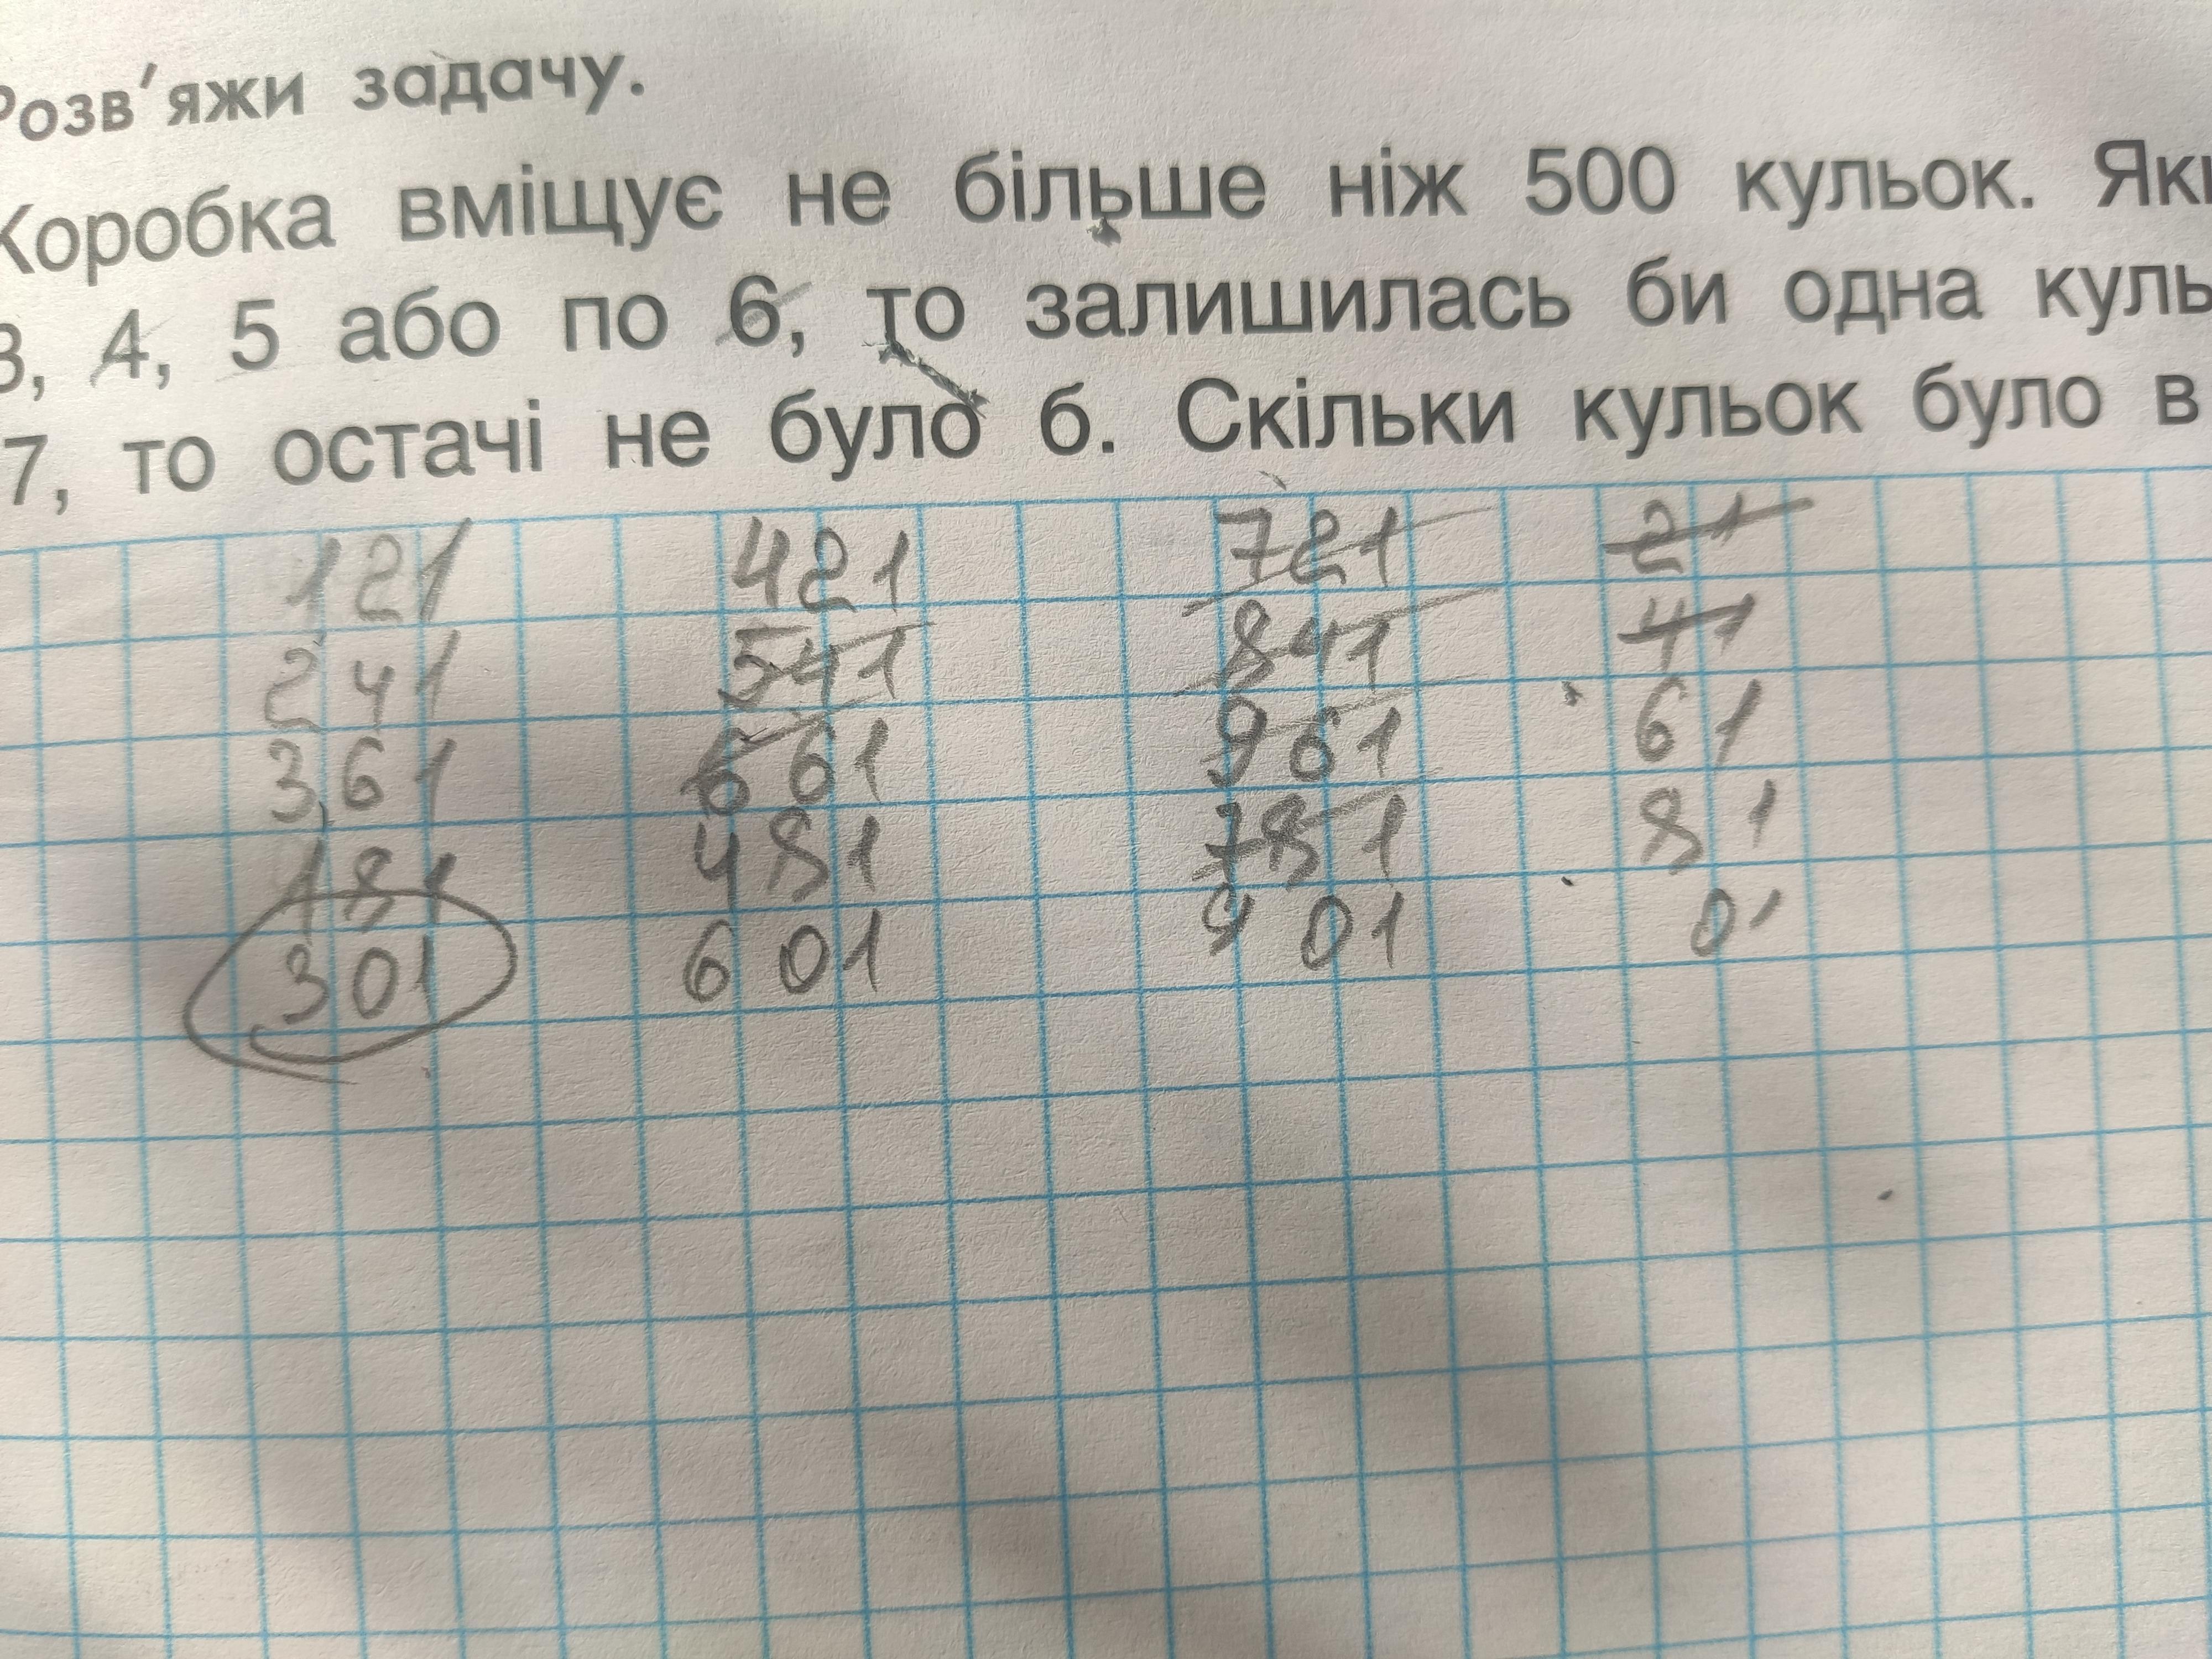 Розв'яжи задачу.
Коробка вміщує не більше ніж 500 кульок.
3, 4, 5 або по 6, то залишилась би одна
7, то остачі не було б. Скільки кульок було в
121 421 721 21
241 541 841 41
361 661 961 61
181 481 781 81
301 601 901 01